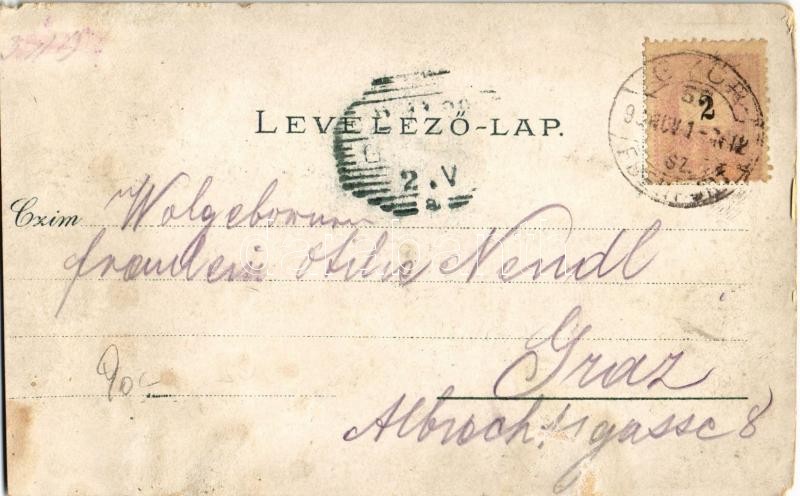 LEVELEZŐ-LAP.
2
2.V
Czim Wolgeborunen
fraulein Otilie Nendl
Graz
Albrechtsgasse 8
90-